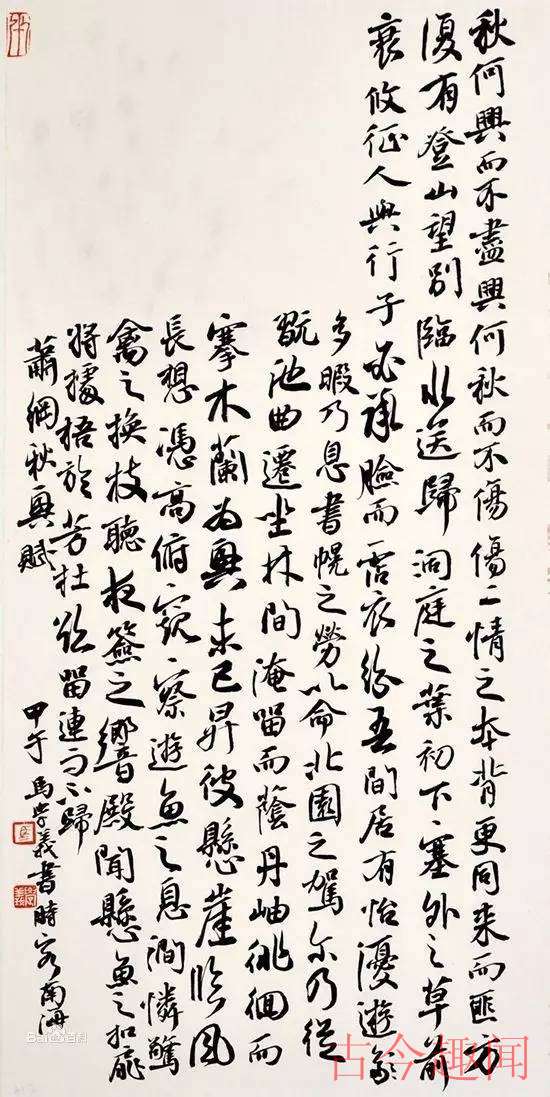 秋何興而不盡興何秋而不傷傷二情之本背更同来而匪方
復有登山望别臨水送歸洞庭之葉初下塞外之草前
衰攸征人與行子必承臉而霑衣紛吾間居有怡優遊
多暇乃息書幌之勞以命北園之駕尔乃從
翫池曲遷坐林間淹留而蔭丹岫徘徊而
搴木蘭為興未已昇彼懸崖臨風
長想憑高俯窺察遊魚之息澗憐驚
禽之換枝聽夜籤之響殿聞懸魚之扣扉
將據梧於芳杜欲留連而不歸
蕭綱秋興賦
甲午馬学義書時客南海
Bai百科
古今趣闻